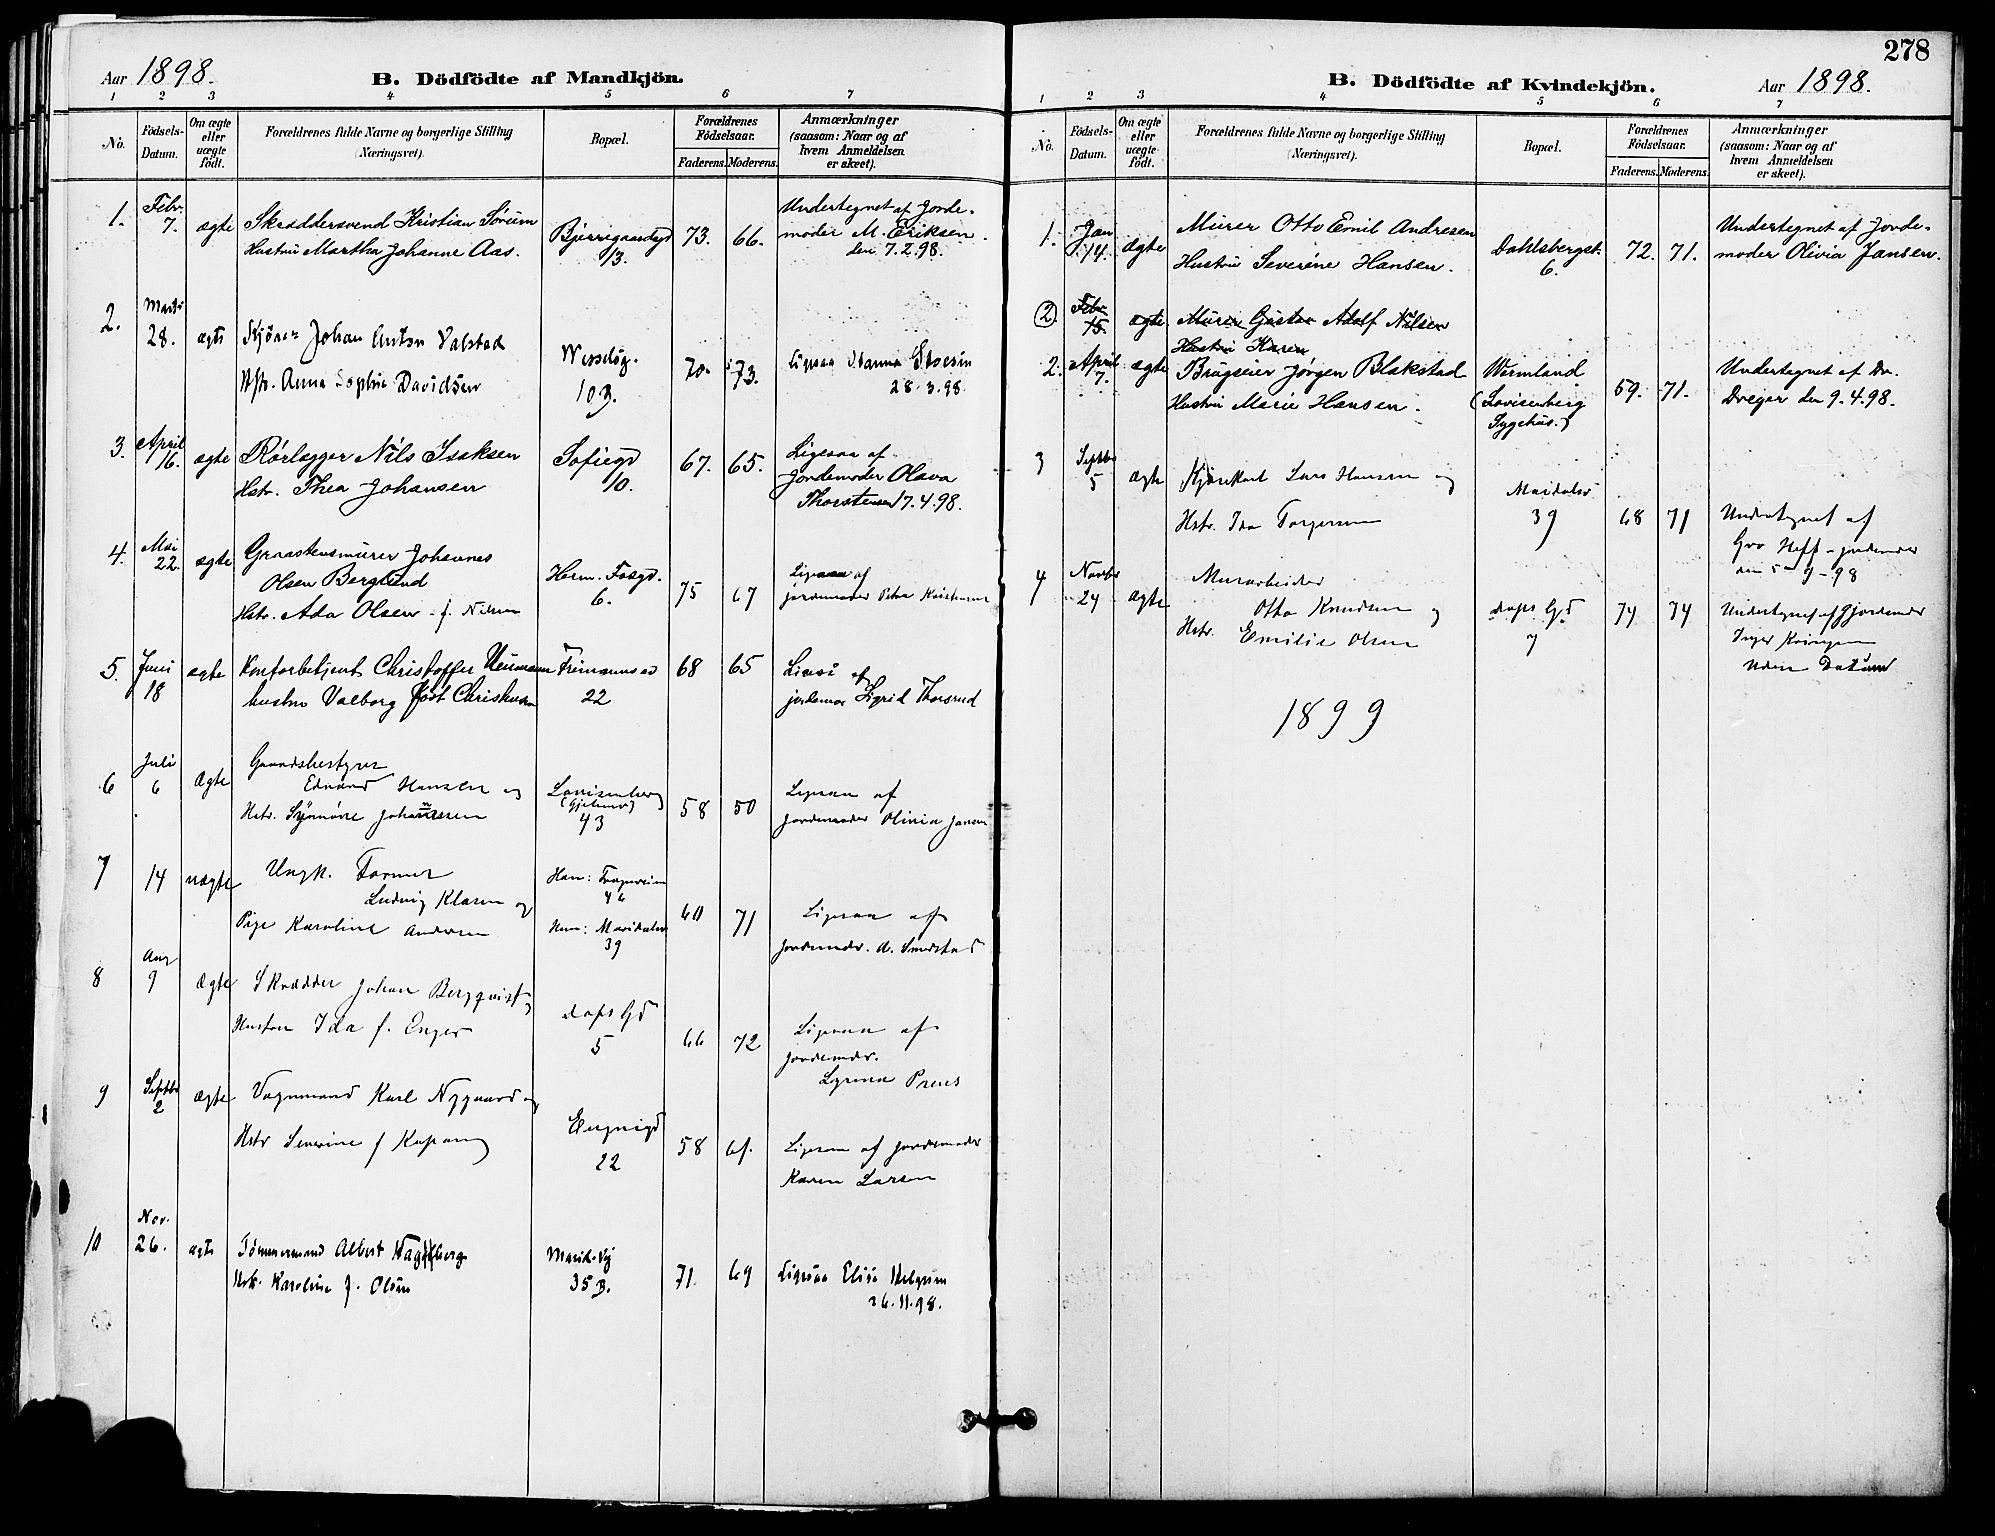 Aar 1898.
B. Dödfödte af Mandkjön.
1 2 3 4 5 6 7
No.
Födsels-Datum.
Om ægte eller uægte födt.
Forældrenes fulde Navne og borgerlige Stilling (Næringsvei).
Bopæl.
Forældrenes Födselsaar.
Faderens. Moderens.
Anmærkninger (saasom: Naar og af hvem Anmeldelsen er skeet).
1. Febr. 7. ægte Skræddersvend Kristian Sörum
Hustru Martha Johanne Aas.
Bjerregaardsgd 13.
73. 66.
Undertegnet af Jorde-
moder M. Eriksen.
den 7.2.98.
2. Marts 28. ægte Kjörer Johan Anton Valstad
Hstr. Anna Sophie Davidsen
10 B.
70. 73.
Ligesaa
28.3.98
3. April 16. ægte Rörlægger Nils Isaksen
Hstr. Thea Johansen
Sofiegd 10.
67. 65.
Ligesaa af
Jordemoder Olava
Thorstensen 17.4.98.
4. Mai 22. ægte Graastensmurer Johannes
Olsen Berglund
Hstr. Ada Olsen f. Nilsen
Herm. Fossgd. 6.
75 67
Ligesaa af
jordemoder Petra
5. Juni 18 ægte Kontorbetjent Christoffer Neumann
hustru Valborg Christensen
22
68 65
af
Sigrid Thorsrud
6 Juli 6 Ægte Gaardsbestyrer
Edvard Hansen og
Hstr. Synnöve Johannessen
Lovisenberg
43
58 50
Ligesaa af
Jordemoder Olivia Jansen
7 14 uægte Ungk. Former
Ludvig Klasen og
Pige Karoline Andersen
Ham:
46
Hun: Maridalsv 39
60 71
Ligesaa af
jordemdr. A. Smedstad
8 Aug 9 Ægte Skrædder Johan Bergqvist og
Hustru Ida f. Enger
Daps Gd 5
66 72
Ligesaa af
jordemdr.
Preus
9 Septbr 2 ægte Vognmand Karl Nygaard og
Hstr Severine f
22
58 61.
Ligesaa af jordemoder
Karen Larsen
10 Nov. 26. ægte Tömmermand Albert
Hst. Karoline f. Olsen
Marid.Vej 35 B.
71. 69
Ligesaa Elise Helgesen
26.11.98.
278
B. Dödfödte af Kvindekjön.
Aar 1898.
1 2 3 4 5 6 7
No.
Födsels-Datum.
Om ægte eller uægte födt.
Forældrenes fulde Navne og borgerlige Stilling (Næringsvei).
Bopæl.
Forældrenes Födselsaar.
Faderens. Moderens.
Anmærkninger (saasom: Naar og af hvem Anmeldelsen er skeet).
1. Jan 14. ægte Murer Otto Emil Andresen
Hustru Severine Hansen.
Dahlsbergst. 6.
72. 71.
Undertegnet af Jorde-
moder Olivia Jansen.
2 Febr 15. ægte Murer Gustav Adolf Nilsen
Hustru Karen
2. April 7. ægte Brugseier Jörgen Blakstad
Hustru Marie Hansen.
Wermland
(Lovisenberg
Sygehus.)
59. 71.
Undertegnet af Dr.
Dreger den 9.4.98.
3 Septbr 5 ægte Kjörekarl Lars Hansen og
Hstr. Ida Torgersen
Maridalsv 39
68 71
Undertegnet af
Gro Neff - jordemoder
den 5-9-98
4 Novbr 24 ægte Murarbeider
Otto Knudsen og
Hstr. Emilie Olsen
Daps Gd 7
74 74
Undertegnet af Jordemoder
Inger
Uden Datum
1899